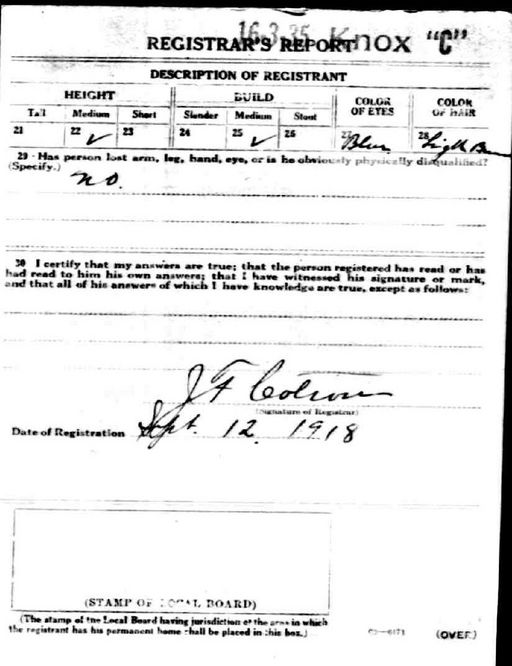 16.3.35 Knox "C"
REGISTRAR'S REPORT
DESCRIPTION OF REGISTRANT
HEIGHT BUILD COLOR OF EYES COLOR OF HAIR
Tall Medium Short Slender Medium Stout
21 22 ✓ 23 24 25 ✓ 26 27 Blue 28 Light
29 Has person lost arm, leg, hand, eye, or is he obviously physically disqualified?
(Specify.) no.
30 I certify that my answers are true; that the person registered has read or has
had read to him his own answers; that I have witnessed his signature or mark,
and that all of his answers of which I have knowledge are true, except as follows:
J F
(Signature of Registrar)
Date of Registration Sept. 12. 1918
(STAMP OF LOCAL BOARD)
(The stamp of the Local Board having jurisdiction of the area in which
the registrant has his permanent home shall be placed in this box.)
(OVER)